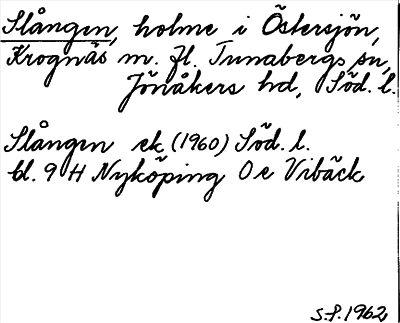 Slången, holme i Östersjön,
Krognäs m. fl. Tunabergs sn,
Jönåkers hd, Söd. l.
Slången ek (1960) Söd. l.
bl. 9 H Nyköping O e Vibäck
S.P. 1962